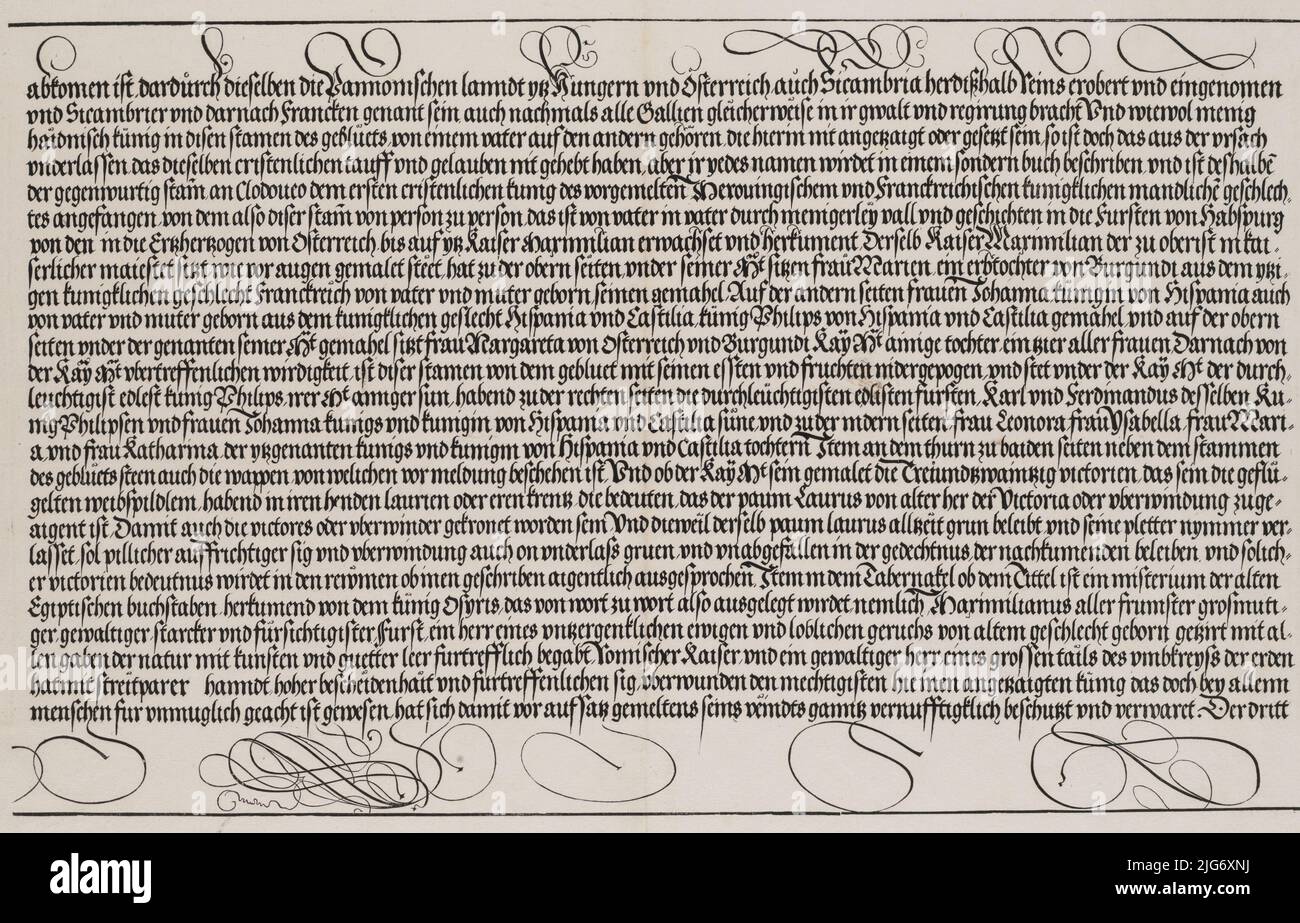 abkomen ist, dardurch dieselben die Pannonischen lanndt ytz Hungern vnd Österreich, auch Sicambria herdißhalb Reins erobert vnd eingenomen
vnd Sicambrier vnd darnach Francken genant sein, auch nachmals alle Gallien gleicherweise in ir gwalt vnd regirung bracht Vnd wiewol menig
haidnisch künig in disen stamen des geblüets, von einem vater auf den andern gehören, die hierin nit angetzaigt oder gesetzt sein, so ist doch das aus der vrsach
vnderlassen, das dieselben cristenlichen tauff vnd gelauben nit gehebt haben, aber ir yedes namen wirdet in einem sondern buch beschriben, vnd ist deshalbē
der gegenwurtig stam̄, an Clodoueo dem ersten cristenlichen kunig des vorgemeltē Merouingischem vnd Franckreichischen kunigklichen mandlichē geschlech-
tes angefangen, von dem also diser stam̄ von person zu person, das ist von vater in vater durch menigerley vall vnd geschichten in die Fursten von Habspurg
von den in die Ertzhertzogen von Österreich, bis auf ytz Kaiser Maximilian erwachset vnd herkument Derselb Kaiser Maximilian der zu oberist in kai-
serlicher maiestet sitzt wie vor augen gemalet steet, hat zu der obern seiten, vnder seiner Mt sitzen frau Marien, ein erbtochter von Burgundi aus dem ytzi-
gen kunigklichen geschlecht Franckreich von vater vnd muter geborn, seinen gemahel, Auf der andern seiten frauen Johanna kunigin von Hispania auch
von vater vnd muter geborn aus dem kunigklichen geslecht Hispania vnd Castilia, künig Philips von Hispania vnd Castilia gemahel, vnd auf der obern
seiten vnder der genanten seiner Mt gemahel sitzt frau Margareta von Österreich vnd Burgundi Kay Mt ainige tochter ein tzier aller frauen Darnach von
der Kay Mt vbertreffenlichen wirdigkeit, ist diser stamen von dem gebluet mit seinen essten vnd fruchten nidergepogen, vnd stet vnder der Kay Mt der durch-
leuchtigist edlest künig Philips, irer Mt ainiger sun, habend zu der rechten seiten die durchleuchtigisten edlisten fursten, Karl vnd Ferdinandus desselben Ku-
nig Philipsen vnd frauen Johanna kunigs vnd kunigin von Hispania vnd Castilia süne, vnd zu der indern seiten, frau Leonora frau Ysabella, frau Mari-
a vnd frau Katharina, der ytzgenanten kunigs vnd kunigin von Hispania vnd Castilia tochtern Item an dem thurn zu baiden seiten neben dem stammen
des geblüets steen auch die wappen, von welichen vor meldung beschehen ist, Vnd ob der Kay Mt sein gemalet die Treiundtzwaintzig victorien, das sein die geflü-
gelten weibspildlein, habend in iren henden laurien oder eren krentz, die bedeuten, das der paum Laurus von alter her der Victoria oder vberwindung zuge-
aigent ist, Damit auch die victores oder vberwinder gekronet worden sein Vnd dieweil derselb paum laurus alltzeit grun beleibt, vnd seine pletter nymmer ver-
lasset, sol pillicher auffrichtiger sig vnd vberwindung auch on vnderlass gruen, vnd vnabgefallen in der gedechtnus, der nachkumenden beleiben, vnd solich-
er victorien bedeutnus wirdet in den reymen ob inen geschriben aigentlich ausgesprochen, Item in dem Tabernakel ob dem Tittel ist ein misterium der alten
Egiptischen buchstaben, herkumend von dem künig Osyris, das von wort zu wort also ausgelegt wirdet, nemlich, Maximilianus aller frumster grosmuti-
ger, gewaltiger, starcker vnd fürsichtigister Furst, ein herr eines vntzergenklichen ewigen vnd loblichen geruchs, von altem geschlecht geborn getzirt mit al-
len gaben der natur mit kunsten vnd guetter leer furtrefflich begabt, Romischer Kaiser, vnd ein gewaltiger herr eines grossen tails des vmbkreyss der erden
hat mit streitparer hanndt hoher bescheidenhait vnd furtreffenlichen sig, vberwunden den mechtigisten hie inen angetzaigten künig das doch bey allenn
menschen fur vnmuglich geacht ist gewesen, hat sich damit vor aufsatz gemeltens seins veindts gantz vernufftigklich beschutzt vnd verwaret. Der dritt
alamy
Image ID: 2JG6XNJ
www.alamy.com